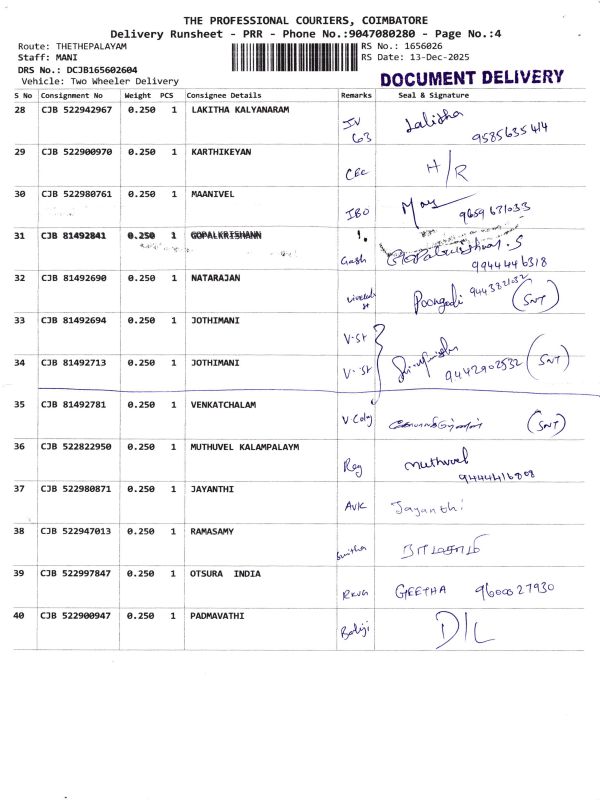 THE PROFESSIONAL COURIERS, COIMBATORE
Delivery Runsheet - PRR - Phone No.:9047080280 - Page No.:4
Route: THETHEPALAYAM RS No.: 1656026
Staff: MANI RS Date: 13-Dec-2025
DRS No.: DCJB165602604
Vehicle: Two Wheeler Delivery DOCUMENT DELIVERY
S No Consignment No Weight PCS Consignee Details Remarks Seal & Signature
28 CJB 522942967 0.250 1 LAKITHA KALYANARAM JV 63 Lalisha 9585635414
29 CJB 522900970 0.250 1 KARTHIKEYAN CEC H/R
30 CJB 522980761 0.250 1 MAANIVEL IBO 9659631033
31 CJB 81492841 0.250 1 GOPALKRISHANN Gash Gopalkrishnan.S 9944446318
32 CJB 81492690 0.250 1 NATARAJAN Poongodi (SNT)
33 CJB 81492694 0.250 1 JOTHIMANI V-St
34 CJB 81492713 0.250 1 JOTHIMANI V-St 9442902532 (SNT)
35 CJB 81492781 0.250 1 VENKATCHALAM V-Coly (SNT)
36 CJB 522822950 0.250 1 MUTHUVEL KALAMPALAYM Reg muthuvel 9444416808
37 CJB 522980871 0.250 1 JAYANTHI AVK Jayanthi
38 CJB 522947013 0.250 1 RAMASAMY ராமசாமி
39 CJB 522997847 0.250 1 OTSURA INDIA GEETHA 9600027930
40 CJB 522900947 0.250 1 PADMAVATHI Balaji D/L